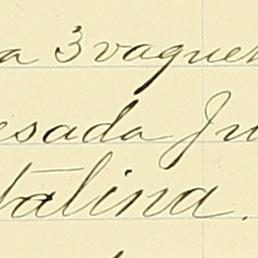 a 3 vaquet
esada Ju
talina.